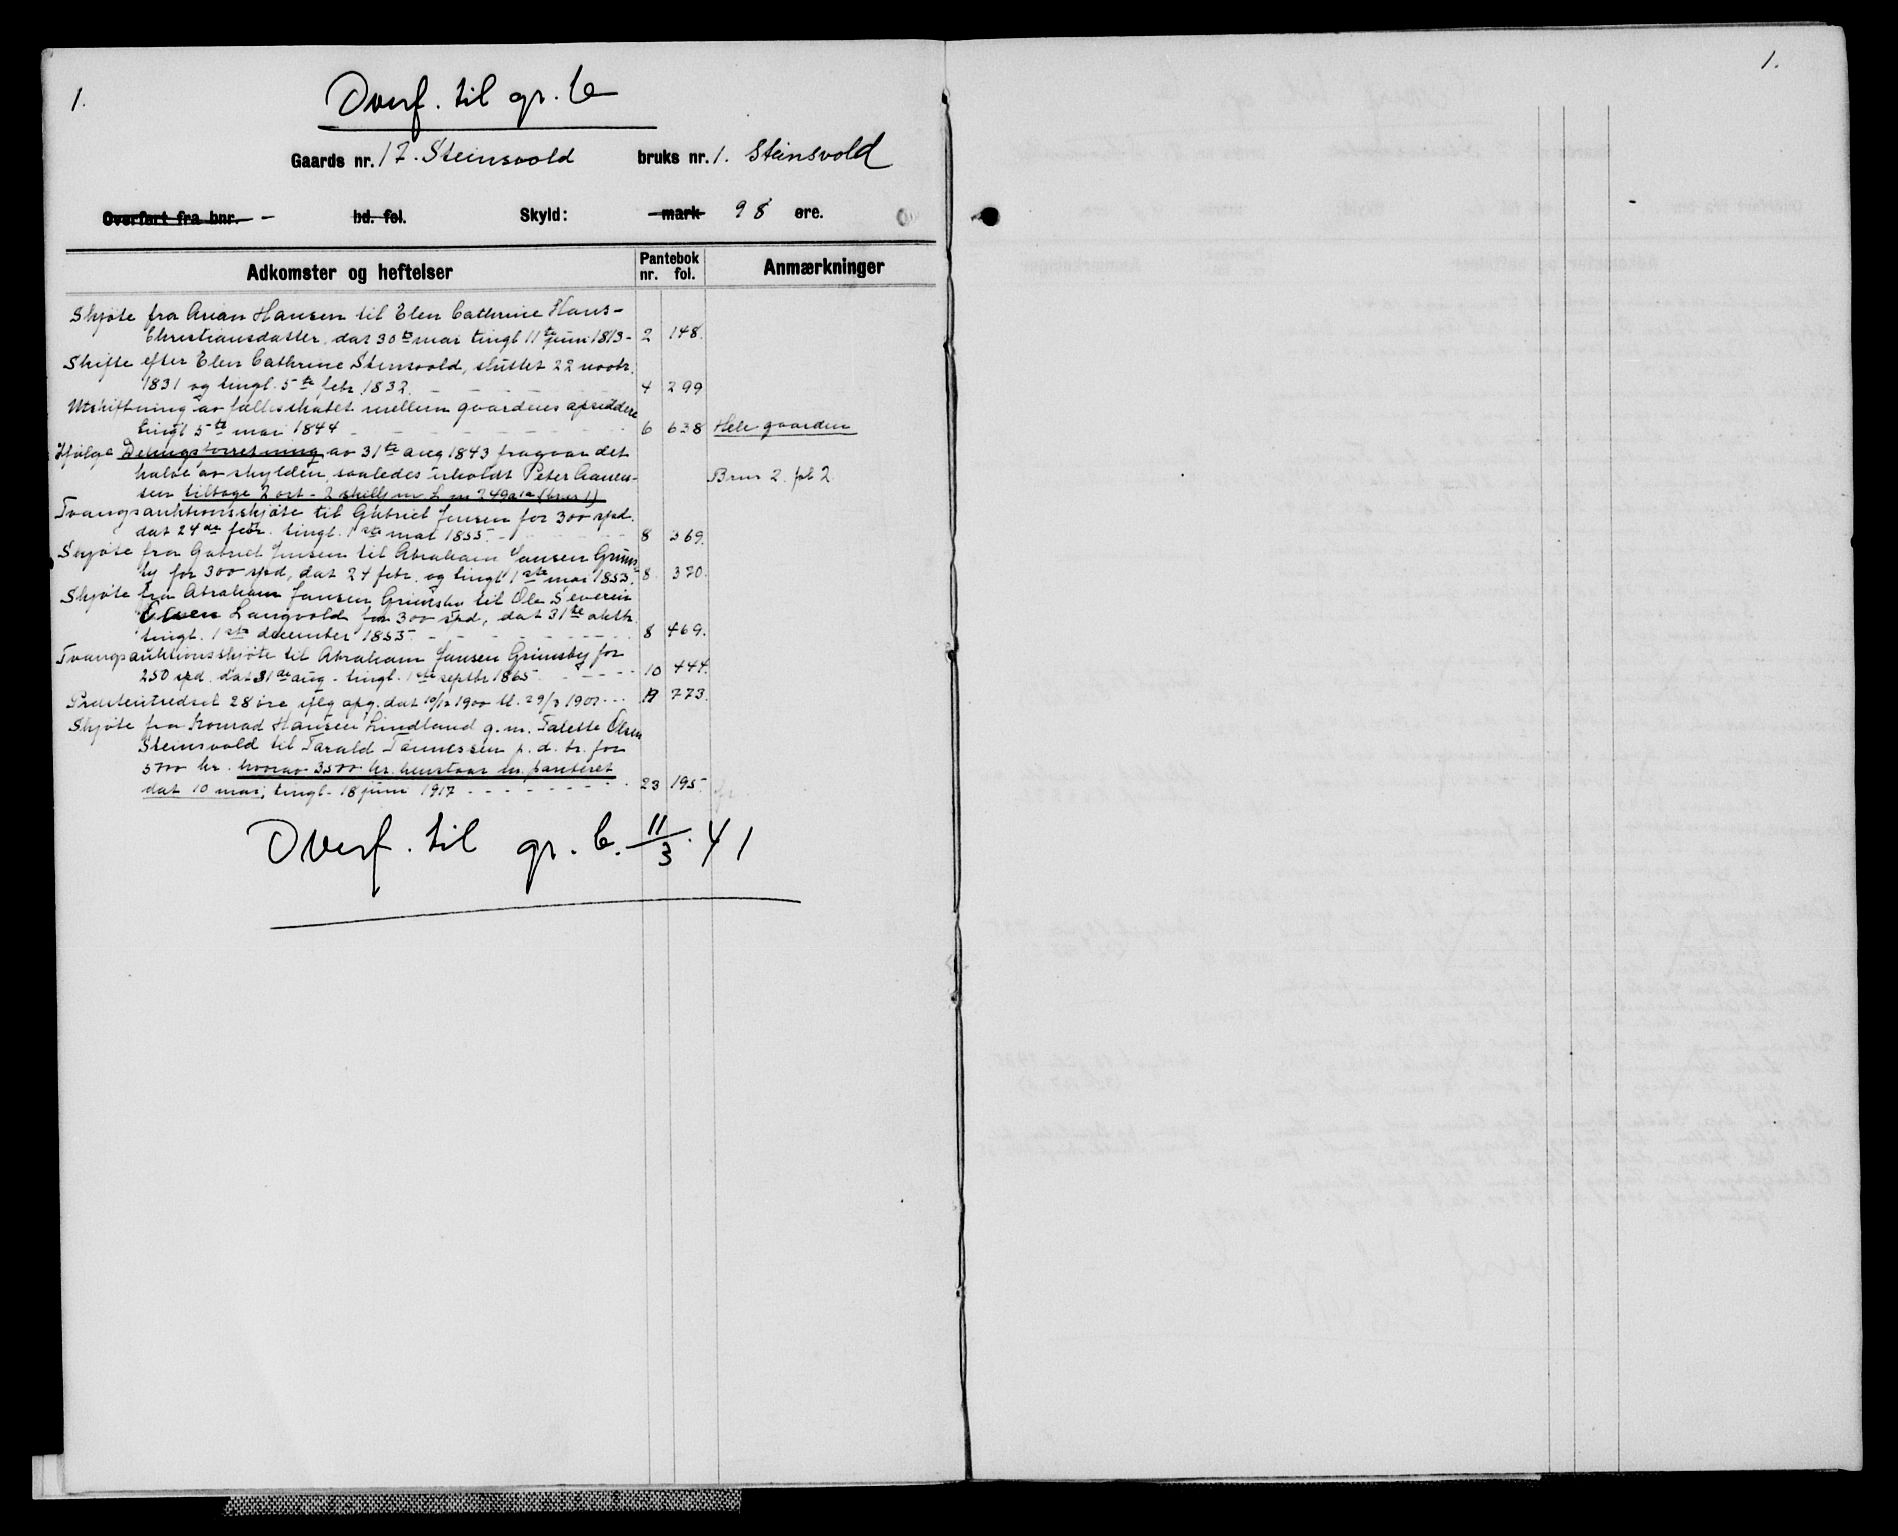 1.
Overf. til gr. 6
Gaards nr. 17. Steinsvold bruks nr. 1. Steinsvold
Overført fra bnr. - bd. fol. Skyld: mark 98 øre.
Adkomster og heftelser Pantebok nr. fol. Anmærkninger
Skjøte fra Arian Hansen til Elen Cathrine Hans-
Christiansdatter, dat 30te mar tingl 11te juni 1813 - 2 148.
Skifte efter Elen Cathrine Stensvold, sluttet 22 novbr.
1831 og tingl. 5te febr. 1832. 4 299
Utskiftning av fællesskabet mellem gaardenes opsiddere
tingl 5te mai 1844 6 638 Hele gaarden
Ifølge Delingsforretning av 31te aug 1843 fragaar det
halve av skylden, saaledes irholdt Peter
sen tilbage 2 ort - 2 skill m L nr 249a (brnr 1) Brnr 2. fol 2.
Tvangsauktionsskjøte til Gabriel Jensen for 300 spd.
dat 24de febr. tingl. 1ste mai 1855. 8 369.
Skjøte fra Gabriel Jensen til Abraham Jansen Grims-
by for 300 spd, dat 24 febr. og tingl 1ste mai 1853. 8. 370.
Skjøte fra Abraham Jansen Grimsby til Ole Severin
Olsen Langvold for 300 spd, dat 31te oktb
tingl. 1ste december 1855. 8 469.
Tvangsauktionsskjøte til Abraham Jansen Grimsby for
250 spd. dat 31de aug - tingl. 1ste septbr 1865 10 444.
28 øre iflg opg. dat 19/12 1900 tl. 29/3 1901 773.
Skjøte fra Konrad Hansen Lindland g. m. Talette Olsen
Steinsvold til Tarald Tønnessen p. d. br. for
5700 kr. hvorav 3500 kr. henstaar m. panteret
dat 10 mai, tingl. 18 juni 1917 23 195.
Overf. til gr. 6. 11/3. 41
1.